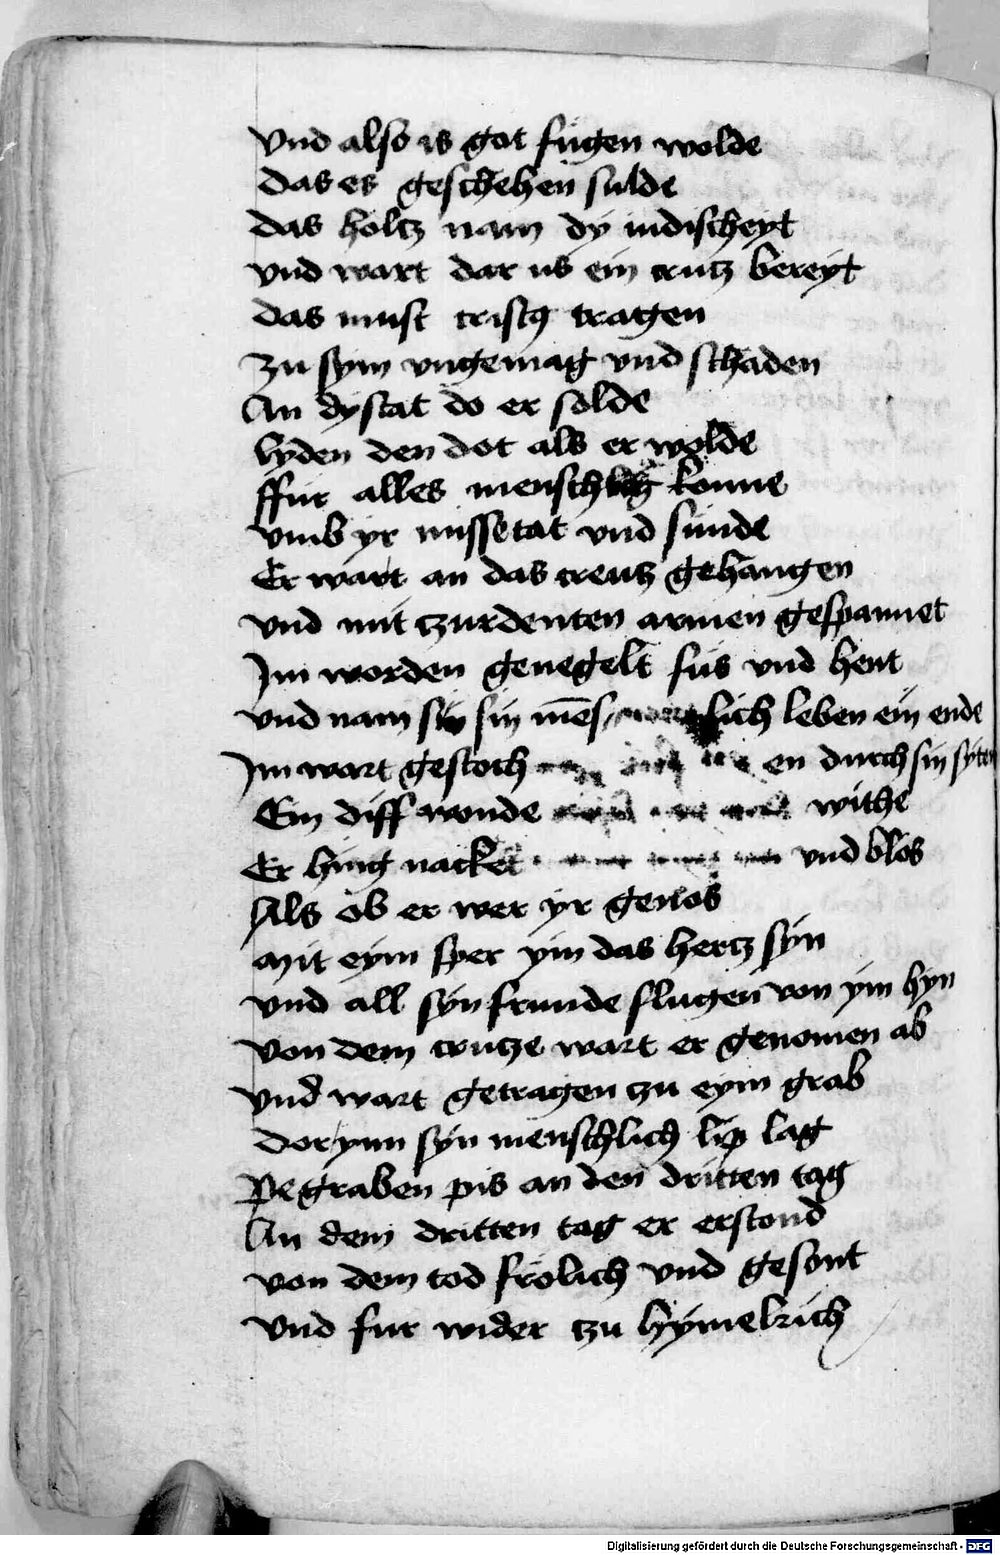 Vnd also is got fugen wolde
das es geschehen sulde
das holtz nam dy iudischeyt
vnd wart dar us ein crutz bereyt
das must cristꝰ tragen
zu sym vngemag vnd schaden
An dy stat do er solde
lyden den dot als er wolde
ffur alles menschlich konne
vmb yr missetat vnd sunde
Er wart an das creutz gehangen
vnd mit tzurdenten armen gespannet
Im worden genegelt fus vnd hent
vnd nam sin mēs lich leben ein ende
Im wart gestoch en durch sin syten
Ein diff wonde withe
Er hing nacket vnd blos
Als ob er wer yr genos
Mit eym sper ym das hertz syn
vnd all syn frunde flugen von ym hyn
Von dem crutze wart er genomen ab
vnd wart getragen tzu eym grab
dor ynn syn menschlich lip lag
Begraben pis an den dritten tag
An dem dritten tag er erstond
von dem tod frolich vnd gesont
Vnd fur wider tzu hymelrich
Digitalisierung gefördert durch die Deutsche Forschungsgemeinschaft - DFG